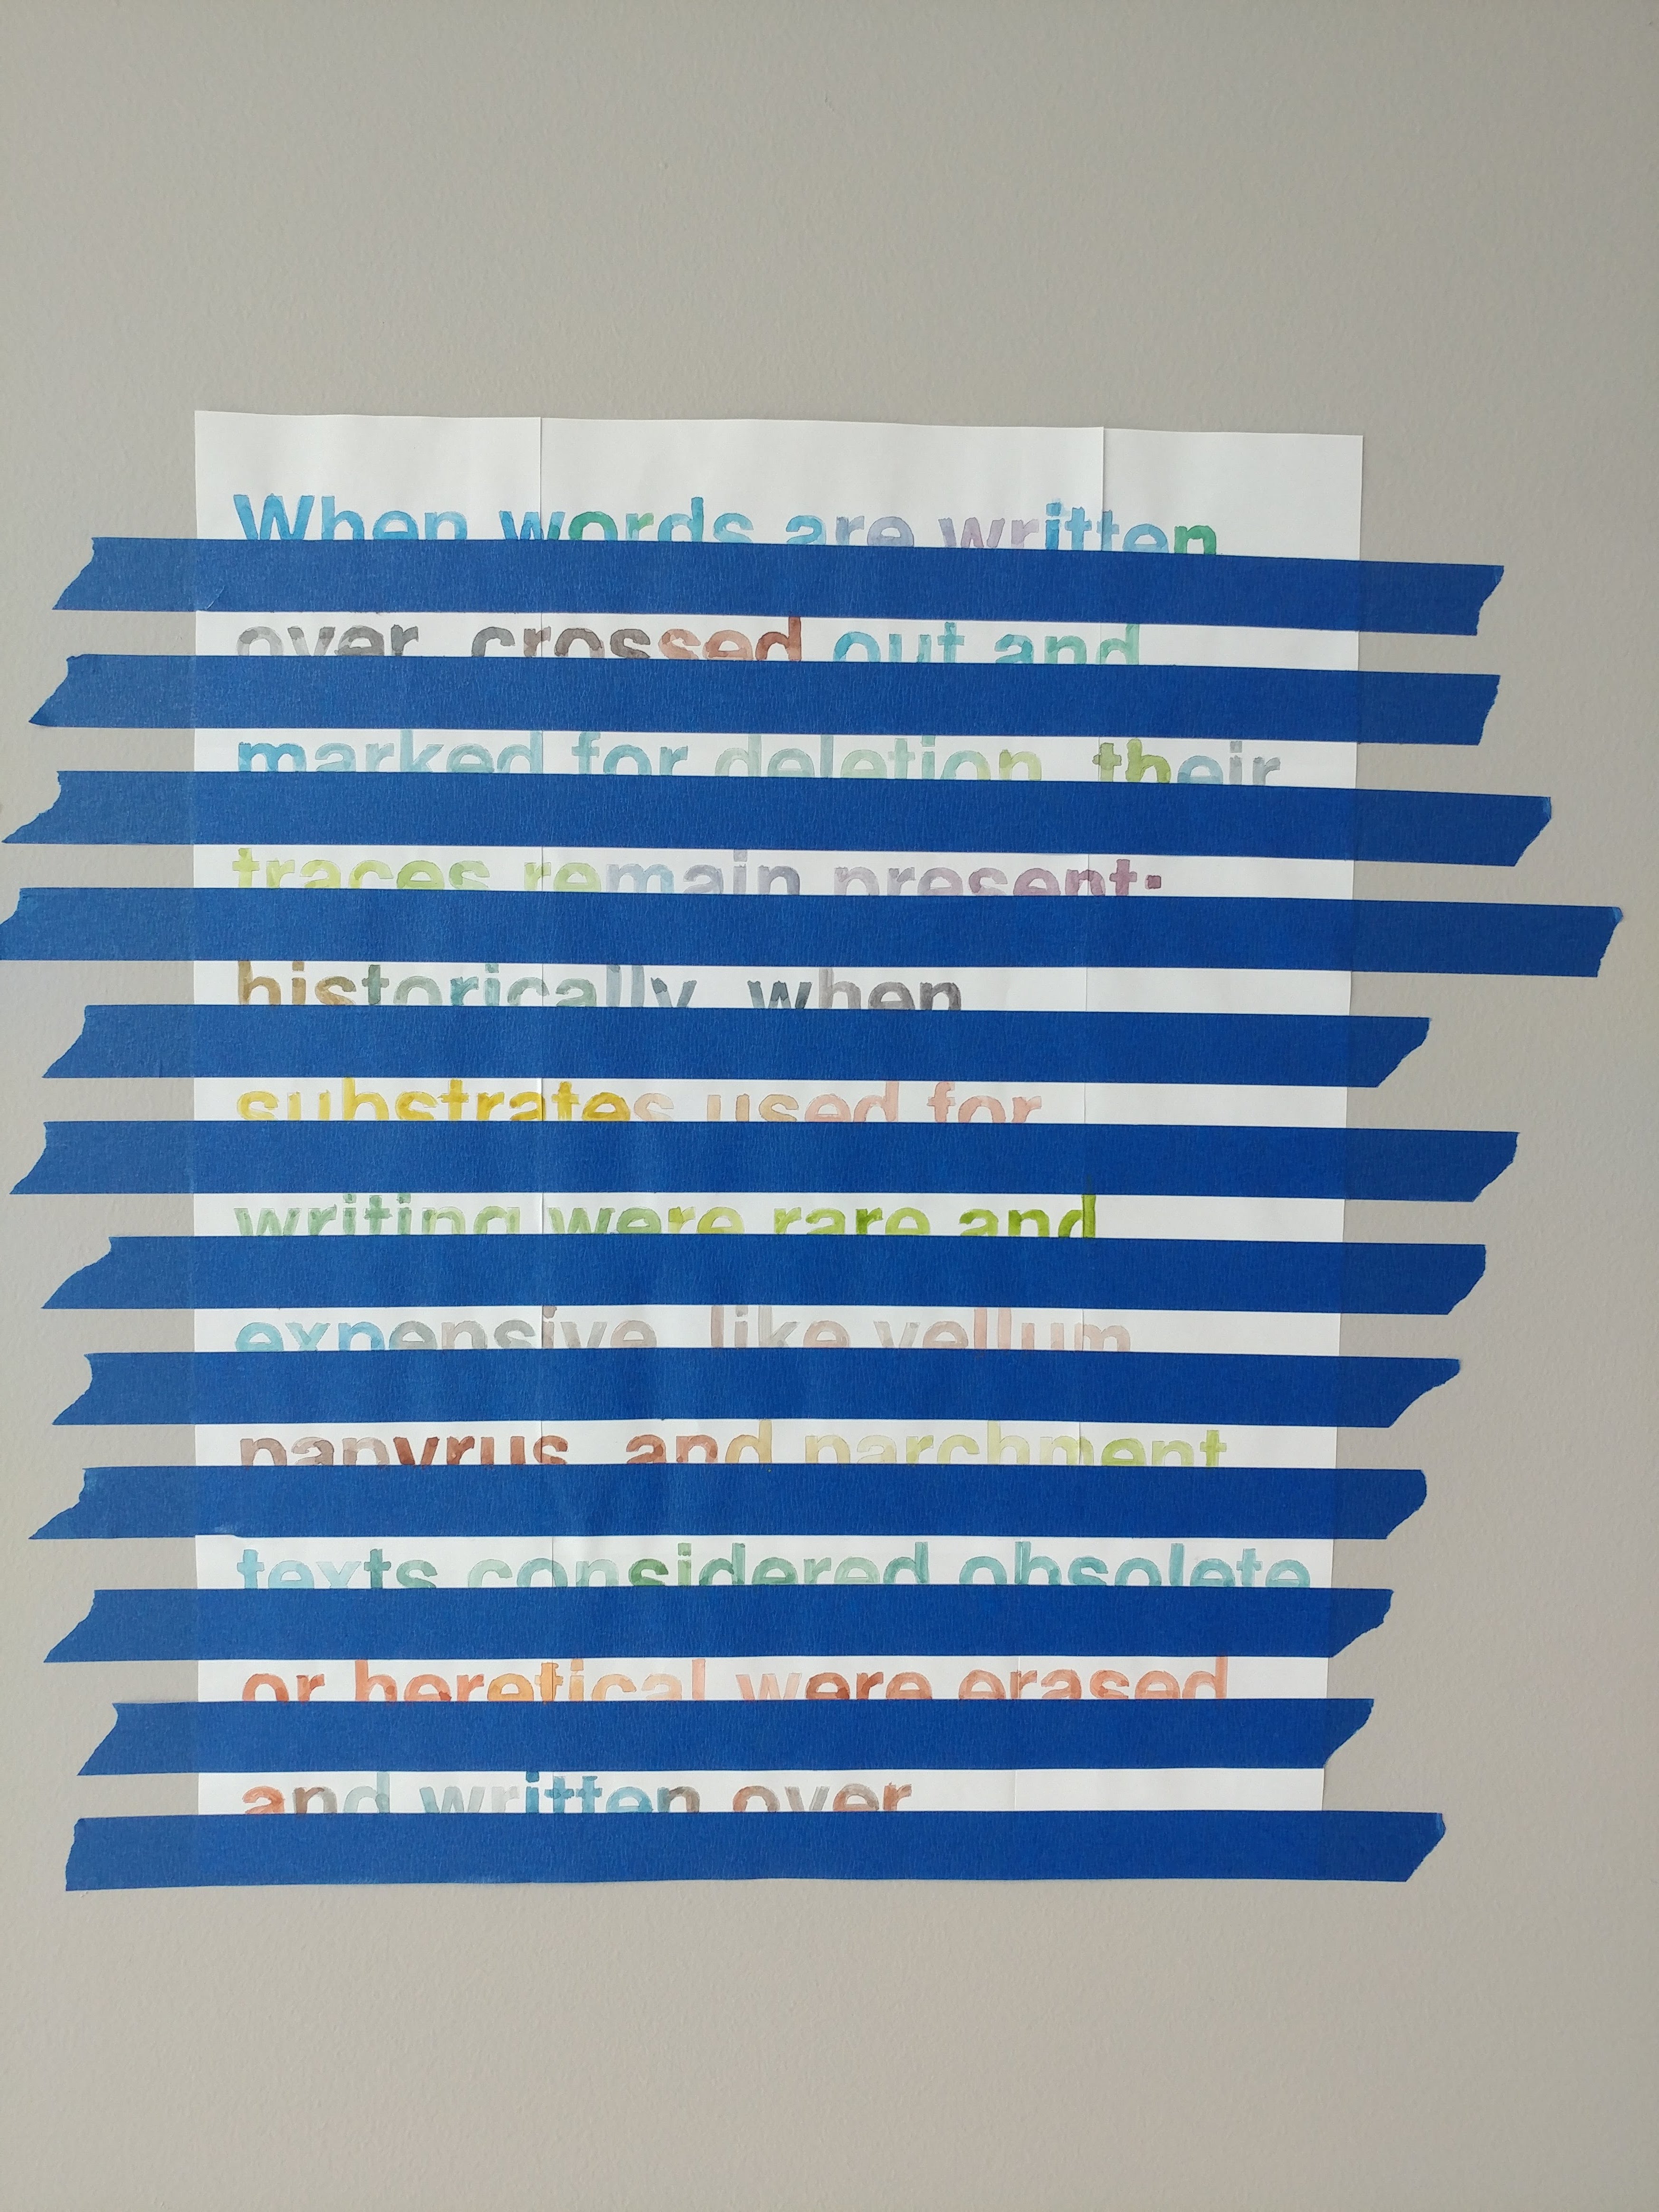 When words are written
over, crossed out and
marked for deletion, their
traces remain present;
historically, when
substrates used for
writing were rare and
expensive, like vellum,
papyrus, and parchment,
texts considered obsolete
or heretical were erased
and written over